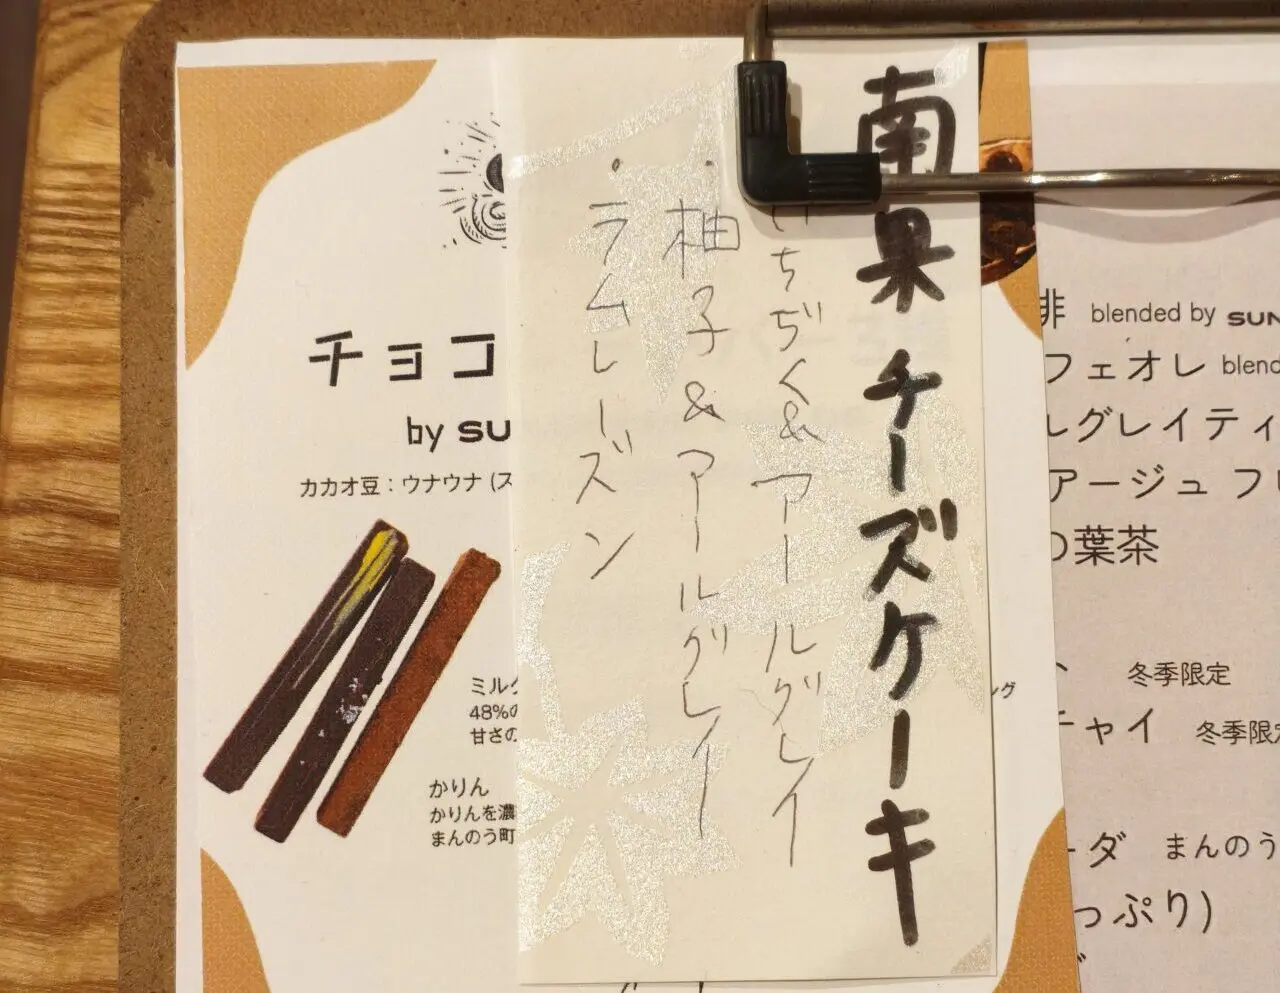 南果 チーズケーキ
いちぢく&アールグレイ
・柚子&アールグレイ
・ラムレーズン
チョコ
by SU
カカオ豆：ウナウナ (ス
ミルク
48%の
甘さの
かりん
かりんを濃
まんのう町
blended by SUN
フェオレ blend
ルグレイティ
アージュ フレ
の葉茶
冬季限定
チャイ 冬季限定
ーダ まんのう
っぷり)